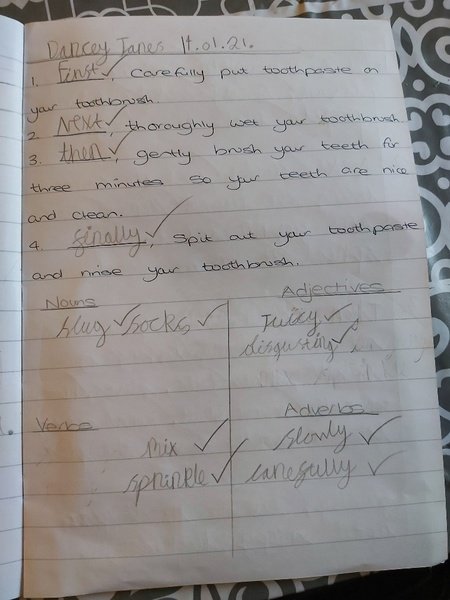 Dancey Janes 14.01.21.
1. First, Carefully put toothpaste on
your toothbrush.
2. Next, thoroughly wet your toothbrush.
3. then, gently brush your teeth for
three minutes so your teeth are nice
and clean.
4. finally, Spit out your toothpaste
and rinse your toothbrush.
Nouns
slug socks
Adjectives
Juicy
disgusting
Verbs
mix
sprinkle
Adverbs
slowly
carefully